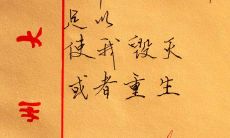 足以
使我毁灭
或者重生
大
州